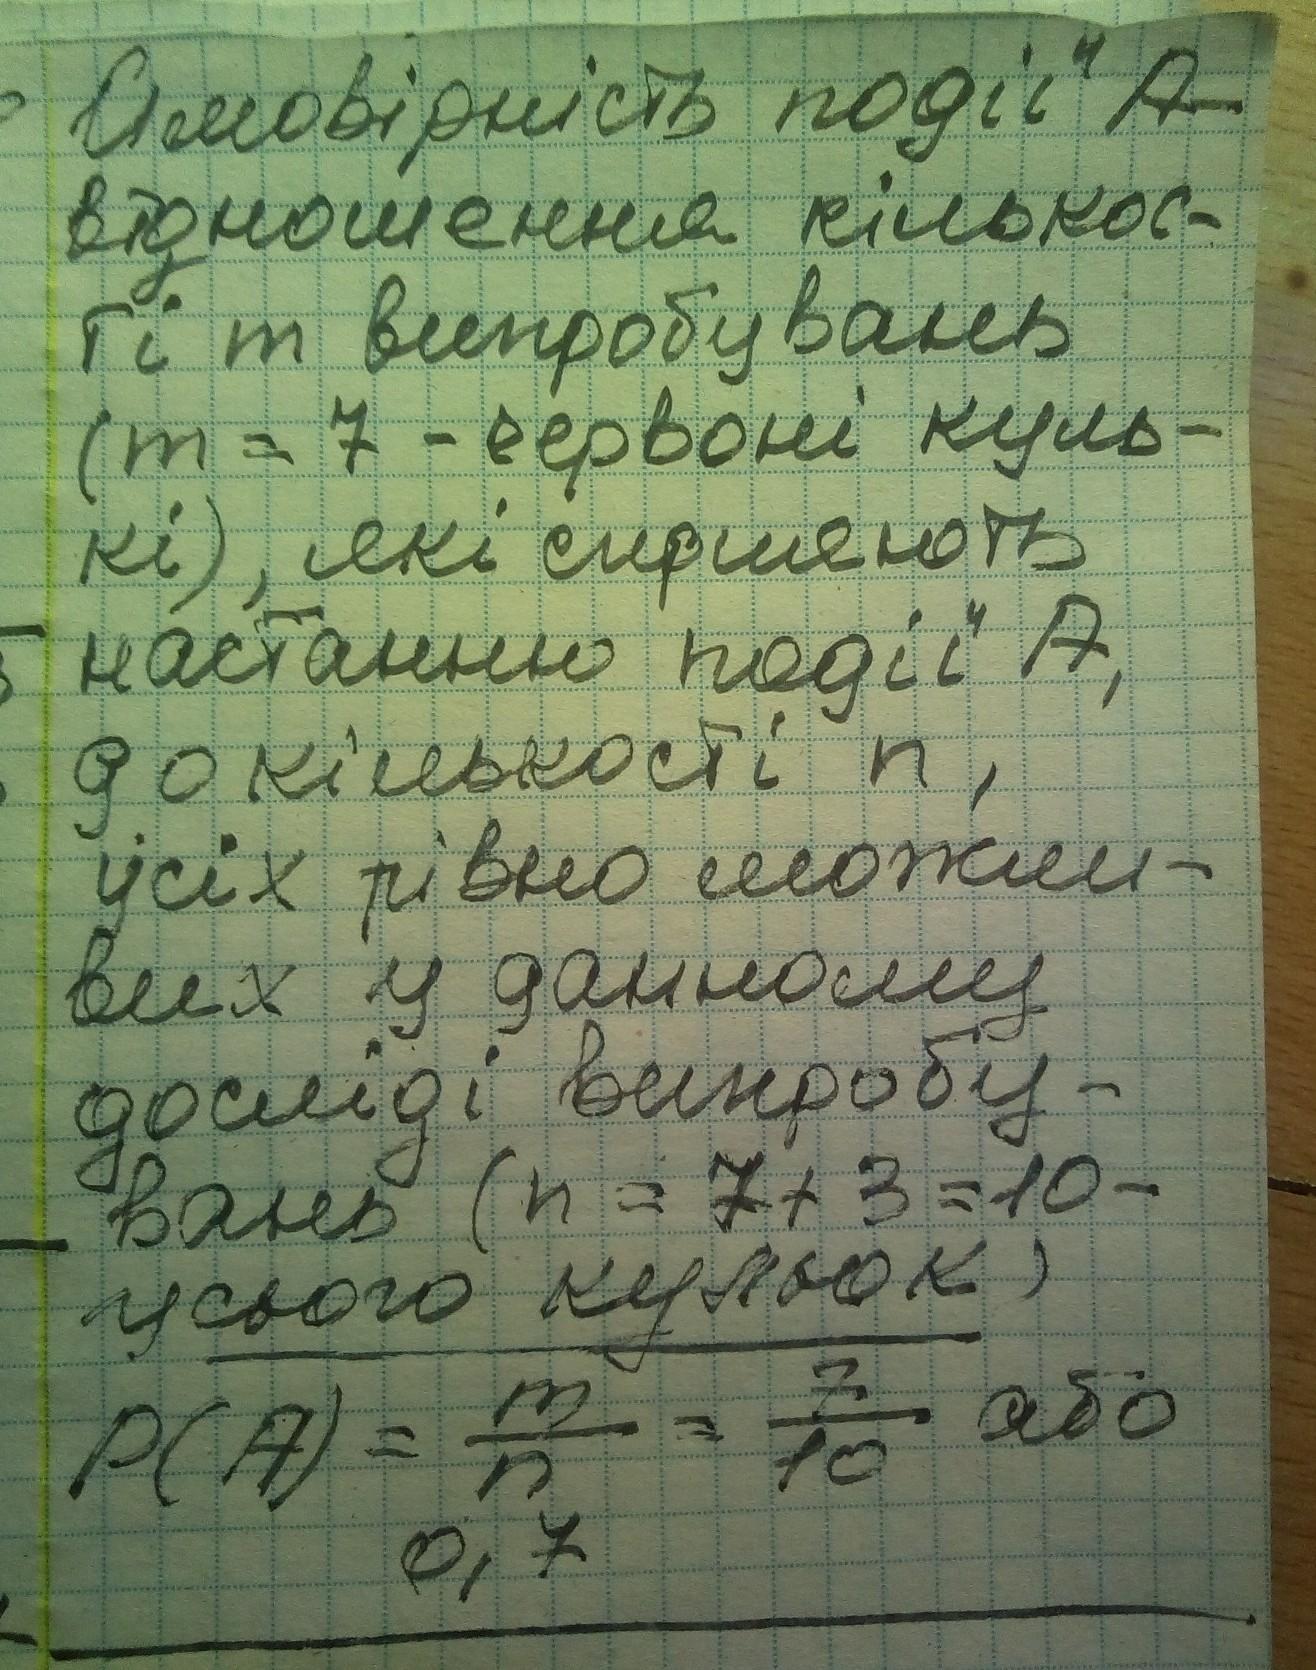 Имовірність події А-
відношення кількос-
ті m випробувань
(m = 7 - червоні куль-
кі), які сприяють
настанню події А,
до кількості n,
усіх рівно можли-
вих у данному
досліді випробу-
вань (n = 7+3=10-
усього кульок)
P(A) = m/n = 7/10 або
0,7